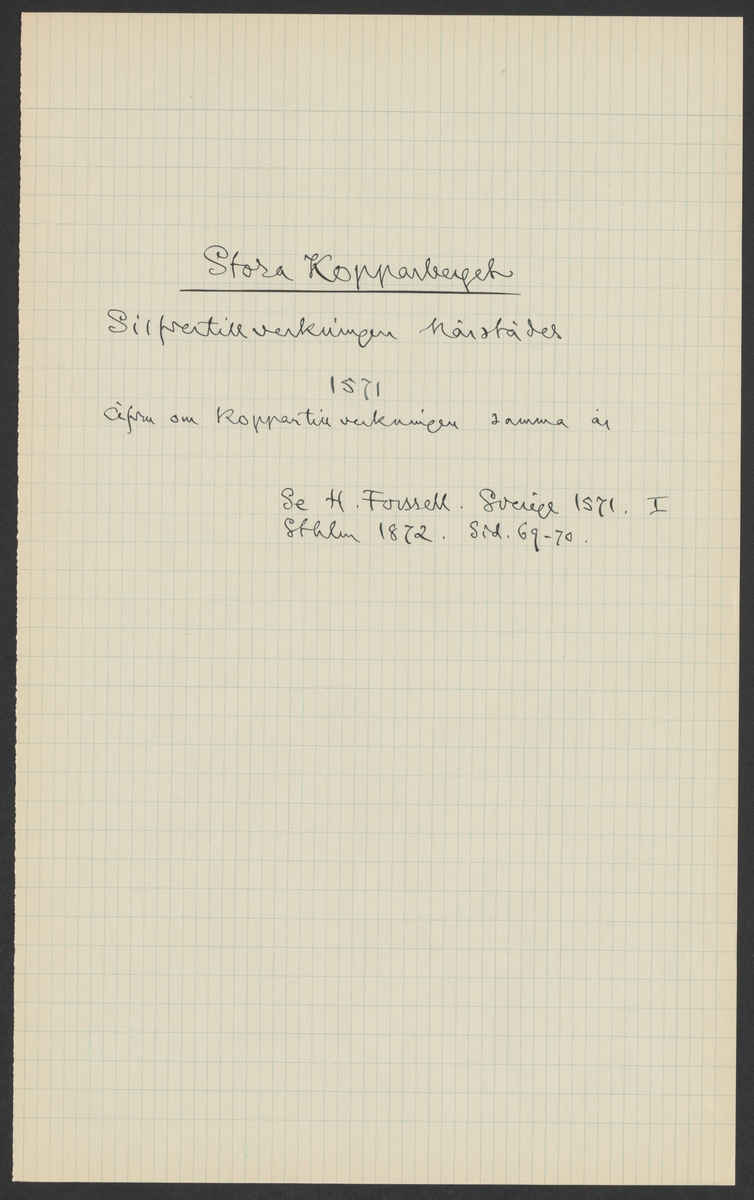 Stora Kopparberget
Silfvertillverkningen härstädes
1571
äfven om koppartillverkningen samma år
Se H. Forssell. Sverige 1571. I
Sthlm 1872. Sid. 69-70.